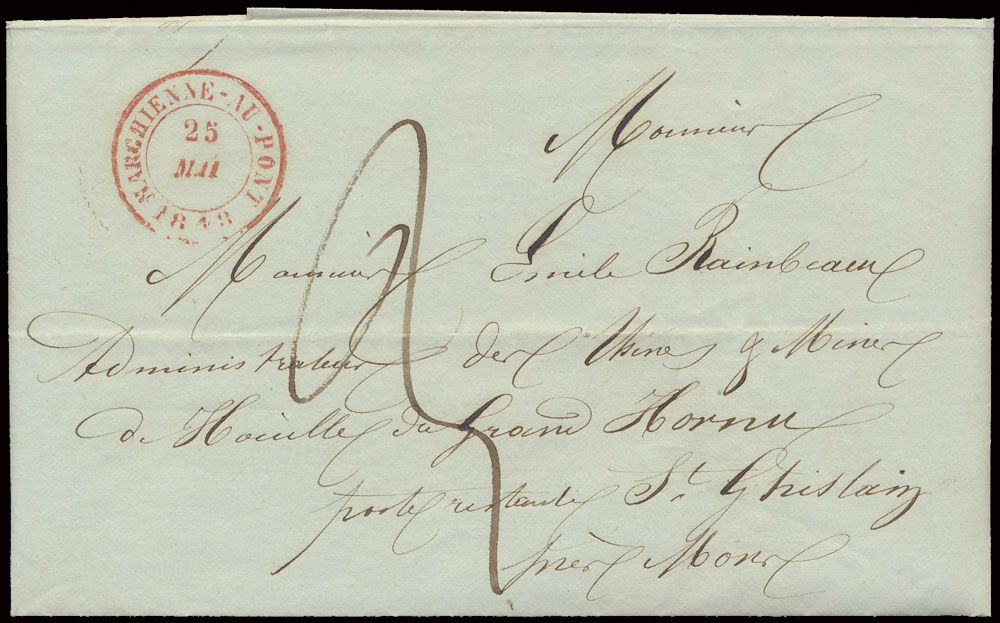 MARCHIENNE-AU-PONT
25
MAI
1848
Monsieur
Monsieur Emile Rainbeaux
Administrateur des Usines & Mines
de Houille du Grand Hornu
poste restante St Ghislain
près Mons